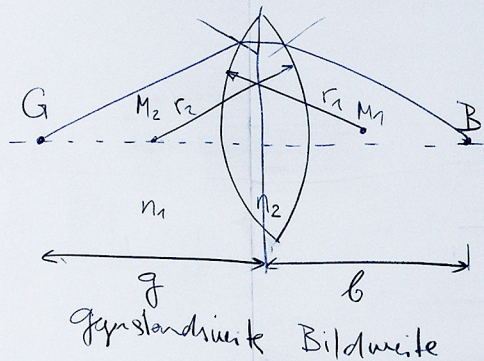 G M₂ r₂ r₁ M₁ B
n₁ n₂
g b
Gegenstandsweite Bildweite